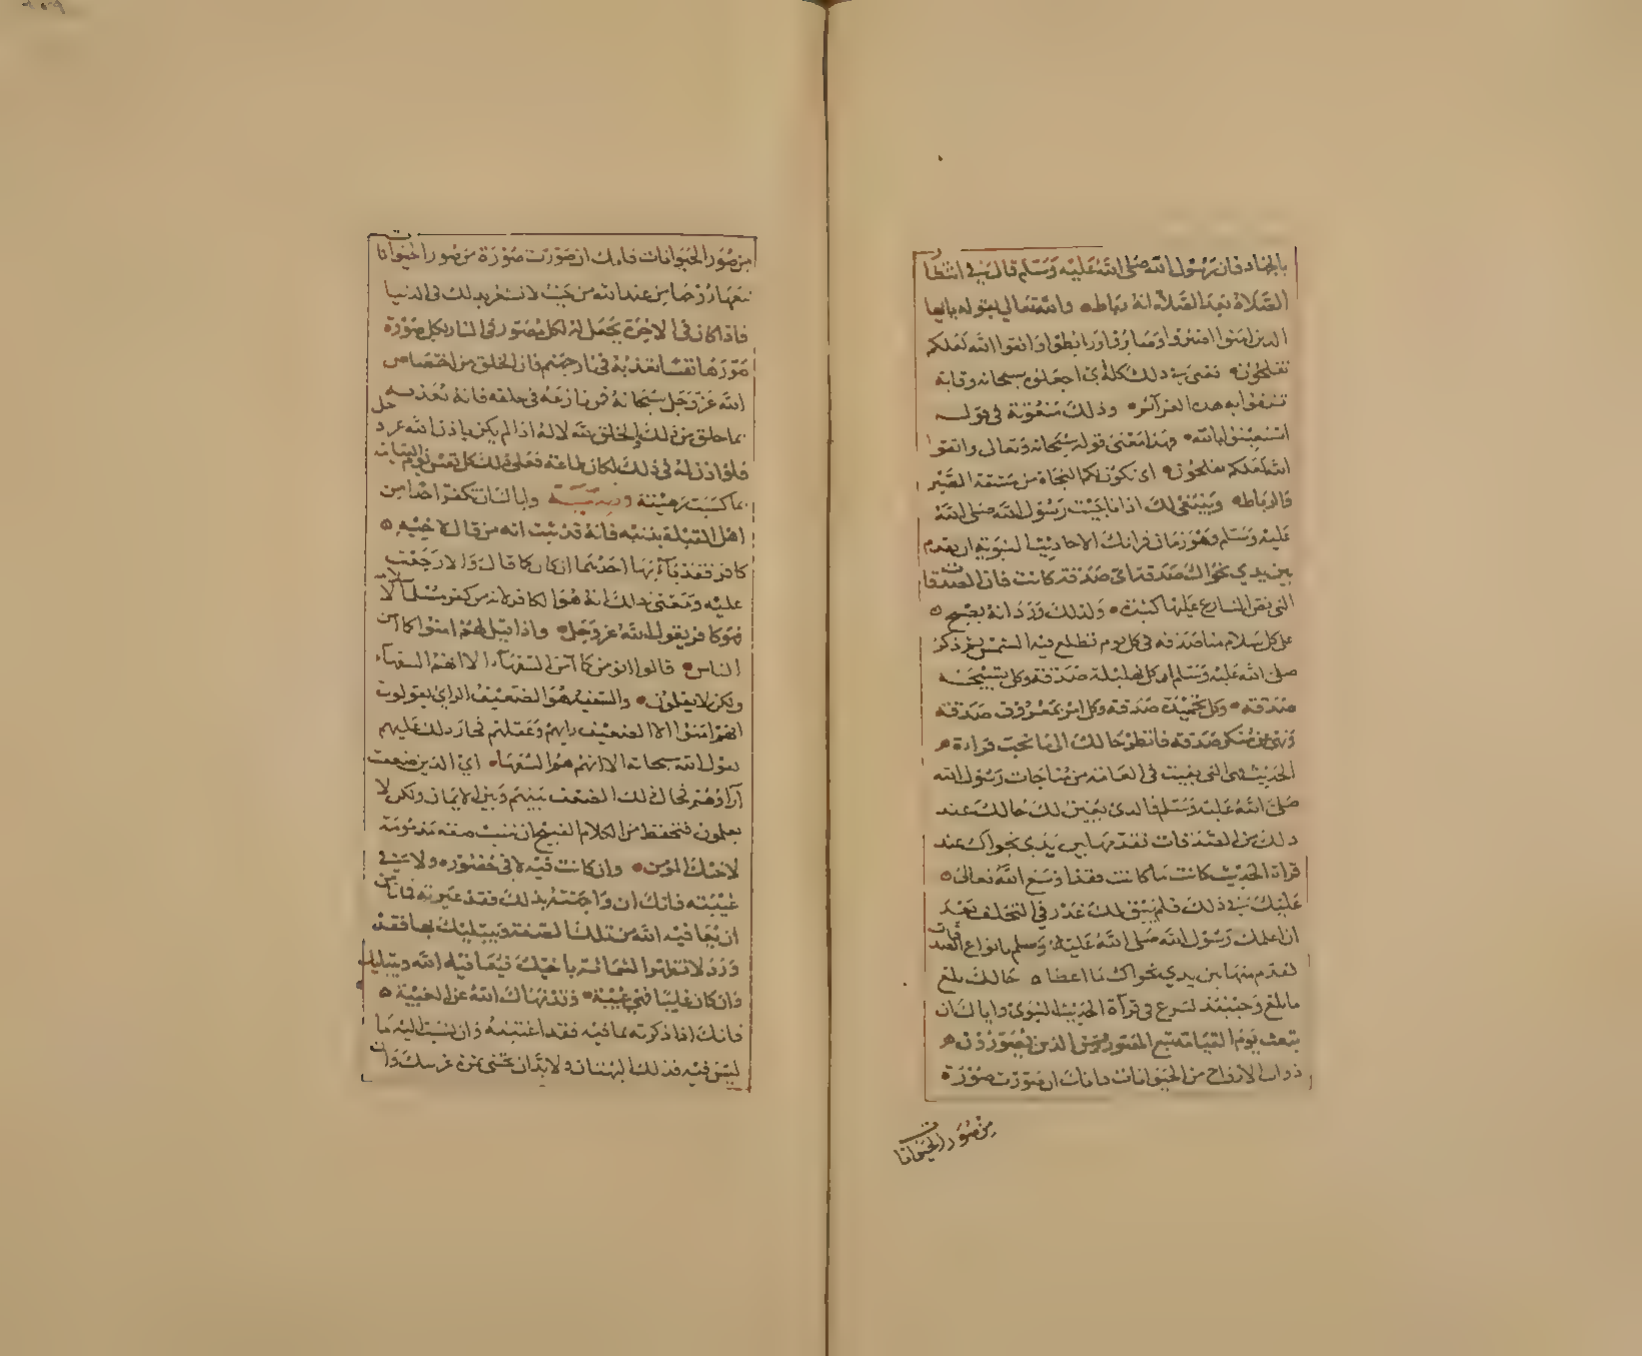 بالجهاد فان رسول الله صلى الله عليه وسلم قال في انتظار
الصلاة بعد الصلاة انه رباط والله تعالى يقول يا ايها
الذين امنوا اصبروا وصابروا ورابطوا واتقوا الله لعلكم
تفلحون يعني في ذلك كله اي اجعلوه سبحانه وقاية
تتقوا به هذه العزائم وذلك معونة في قوله
استعينوا بالله فهذا معنى قوله سبحانه وتعالى واتقوا
الله لعلكم تفلحون اي تكون لكم النجاة من مشقة الصبر
والرباط وينبغي لك اذا ناجيت رسول الله صلى الله
عليه وسلم وهو زمان قراتك الاحاديث النبوية ان تقدم
بين يدي نجواك صدقة اي صدقة كانت فان الصدقات
التي نص الشارع عليها كثيرة ولذلك ورد انه يصبح
على كل سلامى منا صدقة في كل يوم تطلع فيه الشمس ثم ذكر
صلى الله عليه وسلم ان كل تهليلة صدقة وكل تسبيحة
صدقة وكل تحميدة صدقة وكل امر بمعروف صدقة
ونهي عن منكر صدقة فانظر حالك الى ما تحب قراءة
الحديث فهي التي بقيت في العامة من مناجات رسول الله
صلى الله عليه وسلم فالذي يعين لك حالك عند
ذلك من الصدقات تقدمها بين يدي نجواك عند
قراة الحديث كانت ما كانت فقد اوسع الله تعالى
عليك في ذلك فلم يبق لك عذر في التخلف بعد
ان اعلمك رسول الله صلى الله عليه وسلم بانواع الصدقات
لتقدم منها بين يدي نجواك ما اعطا حالك بلغ
ما بلغ وحينئذ تشرع في قراة الحديث النبوي واياك ان
تبعث يوم القيامة مع المصورين الذين يصورون
ذوات الارواح من الحيوانات فانك ان صورت صورة
من صور الحيوانات
من صور الحيوانات فانك ان صورت صورة من صور الحيوانات
تبعها روحا من عند الله من حيث لا تشعر بذلك في الدنيا
فاذا كان في الاخرة يجعل له لكل مصور في النار بكل صورة
صورها نفسا تعذبه في نار جهنم فان الخلق من اختصاص
الله عز وجل سبحانه فمن نازعه في خلقه فانه يعذبه
بما خلق من ذلك الخلق لله لا له اذا لم يكن باذن الله عز وجل
فلو اذن له في ذلك لكان طاعة فعلى ذلك كل نفس يوم القيامة
بما كسبت رهينة وصية واياك ان تكفر احدا من
اهل القبلة بذنبه فانه قد ثبت انه من قال لاخيه
كافر فقد باء بها احدهما ان كان كما قال والا رجعت
عليه ومعنى ذلك انه هو الكافر لانه من كفر مسلما
فهو كافر يقول الله عز وجل واذا قيل لهم امنوا كما آمن
الناس قالوا انؤمن كما آمن السفهاء الا انهم هم السفهاء
ولكن لا يعلمون والسفيه هو الضعيف الراي يقولون
انهم امنوا الا الضعيف رايهم وعقلهم فحاز ذلك عليهم
بقول الله سبحانه الا انهم هم السفهاء اي الذين ضعفت
آراؤهم فحال ذلك الضعف بينهم وبين الايمان ولكن لا
يعلمون فتحفظ من الكلام القبيح ان تنسب صفة مذمومة
لاخيك المؤمن وان كانت فيه لا في حضوره ولا في
غيبته فانك ان واجهته بذلك فقد عيرته
ان يعافيه الله من تلك الصفة ويبتليك بها فقد
ورد لا تظهر الشماتة باخيك فيعافيه الله ويبتليك
وان كان غايبا فهي غيبة وقد نهاك الله عن الغيبة
فانك اذا ذكرته بما فيه فقد اغتبته وان نسبت اليه ما
ليس فيه فذلك البهتان ولا بد ان تجني ثمرة غرسك وان